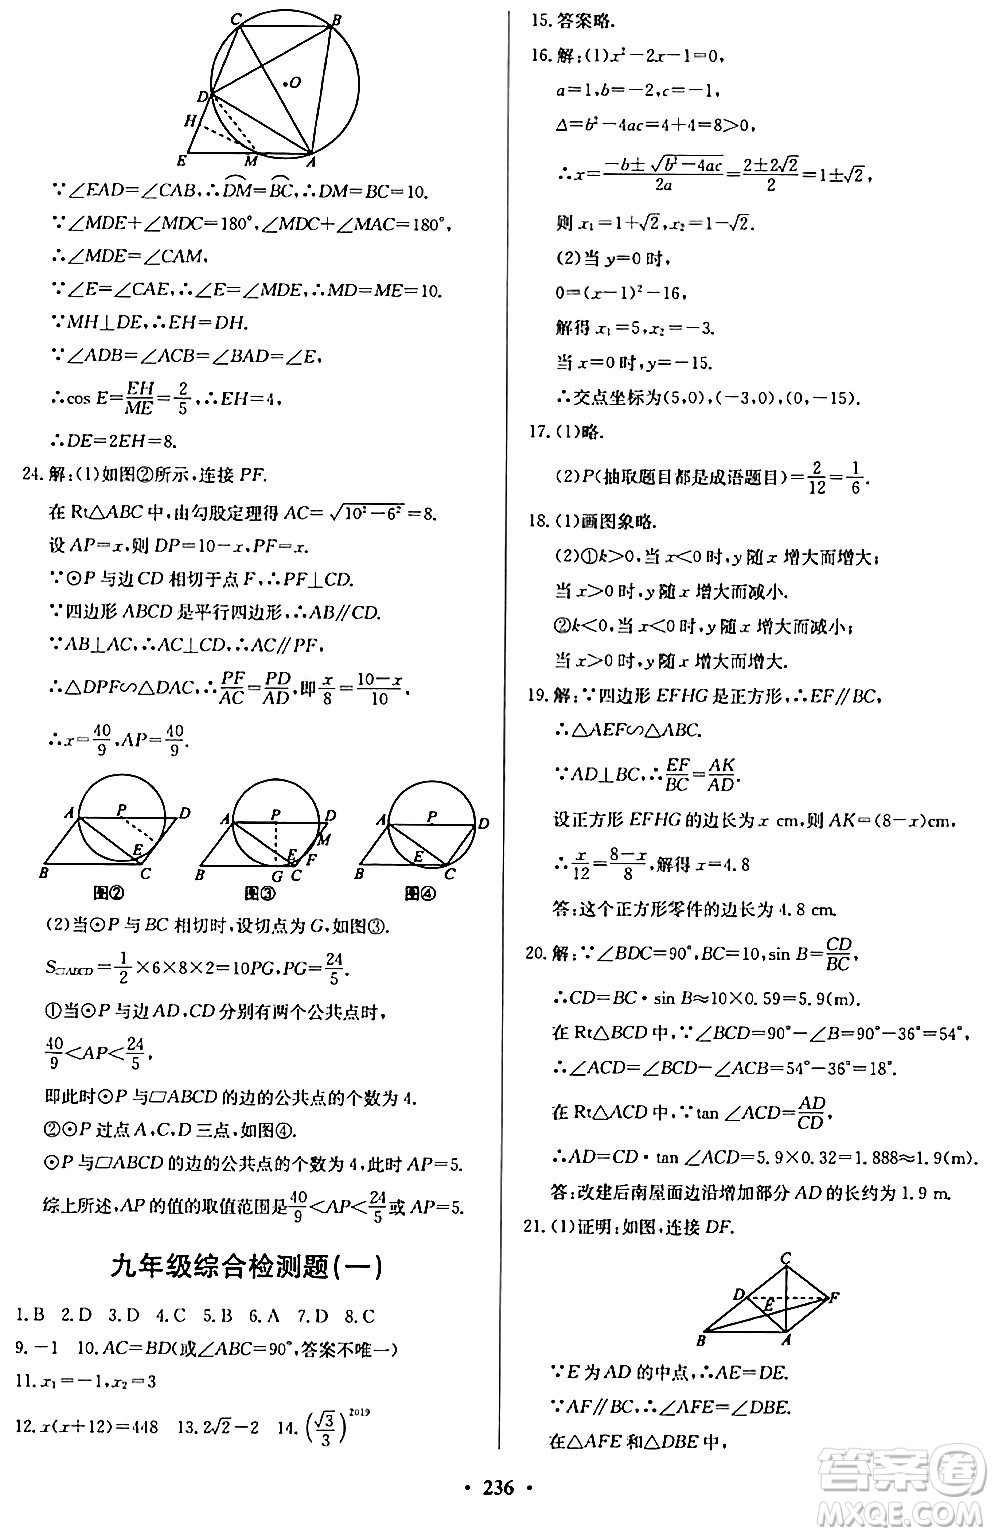 C B
O
D
H
E M A
∵∠EAD=∠CAB,∴DM⌒=BC⌒,∴DM=BC=10.
∵∠MDE+∠MDC=180°,∠MDC+∠MAC=180°,
∴∠MDE=∠CAM,
∵∠E=∠CAE,∴∠E=∠MDE,∴MD=ME=10.
∵MH⊥DE,∴EH=DH.
∵∠ADB=∠ACB=∠BAD=∠E,
∴cos E=EH/ME=2/5,∴EH=4,
∴DE=2EH=8.
24.解:(1)如图②所示,连接 PF.
在 Rt△ABC 中,由勾股定理得 AC=√(10²-6²)=8.
设 AP=x,则 DP=10-x,PF=x,
∵⊙P 与边 CD 相切于点 F,∴PF⊥CD.
∵四边形 ABCD 是平行四边形,∴AB∥CD.
∵AB⊥AC,∴AC⊥CD,∴AC∥PF,
∴△DPF∽△DAC,∴PF/AC=PD/AD,即x/8=(10-x)/10,
∴x=40/9,AP=40/9.
A P D B E C
A P D M B G E C F
A P D B E C
图② 图③ 图④
(2)当⊙P 与 BC 相切时,设切点为 G,如图③.
S▱ABCD=1/2×6×8×2=10PG,PG=24/5.
①当⊙P 与边 AD,CD 分别有两个公共点时,
40/9<AP<24/5,
即此时⊙P 与▱ABCD 的边的公共点的个数为 4.
②⊙P 过点 A,C,D 三点,如图④.
⊙P 与▱ABCD 的边的公共点的个数为 4,此时 AP=5.
综上所述,AP 的值的取值范围是40/9<AP<24/5或 AP=5.
九年级综合检测题(一)
1.B 2.D 3.D 4.C 5.B 6.A 7.D 8.C
9.-1 10.AC=BD(或∠ABC=90°,答案不唯一)
11.x₁=-1,x₂=3
12.x(x+12)=448 13.2√2-2 14.(√3/3)²⁰¹⁹
15.答案略.
16.解:(1)x²-2x-1=0,
a=1,b=-2,c=-1,
Δ=b²-4ac=4+4=8>0,
∴x=(-b±√(b²-4ac))/2a=(2±2√2)/2=1±√2,
则 x₁=1+√2,x₂=1-√2.
(2)当 y=0 时,
0=(x-1)²-16,
解得 x₁=5,x₂=-3.
当 x=0 时,y=-15.
∴交点坐标为(5,0),(-3,0),(0,-15).
17.(1)略.
(2)P(抽取题目都是成语题目)=2/12=1/6.
18.(1)画图象略.
(2)①k>0,当 x<0 时,y 随 x 增大而增大;
当 x>0 时,y 随 x 增大而减小.
②k<0,当 x<0 时,y 随 x 增大而减小;
当 x>0 时,y 随 x 增大而增大.
19.解:∵四边形 EFHG 是正方形,∴EF∥BC,
∴△AEF∽△ABC.
∵AD⊥BC,∴EF/BC=AK/AD.
设正方形 EFHG 的边长为 x cm,则 AK=(8-x)cm,
∴x/12=(8-x)/8,解得 x=4.8
答:这个正方形零件的边长为 4.8 cm.
20.解:∵∠BDC=90°,BC=10,sin B=CD/BC,
∴CD=BC·sin B≈10×0.59=5.9(m).
在 Rt△BCD 中,∵∠BCD=90°-∠B=90°-36°=54°,
∴∠ACD=∠BCD-∠ACB=54°-36°=18°.
在 Rt△ACD 中,∵tan ∠ACD=AD/CD,
∴AD=CD·tan ∠ACD=5.9×0.32=1.888≈1.9(m).
答:改建后南屋面边沿增加部分 AD 的长约为 1.9 m.
21.(1)证明:如图,连接 DF.
C
D E F
B A
∵E 为 AD 的中点,∴AE=DE.
∵AF∥BC,∴∠AFE=∠DBE.
在△AFE 和△DBE 中,
· 236 ·
答案圈
MXQE.COM